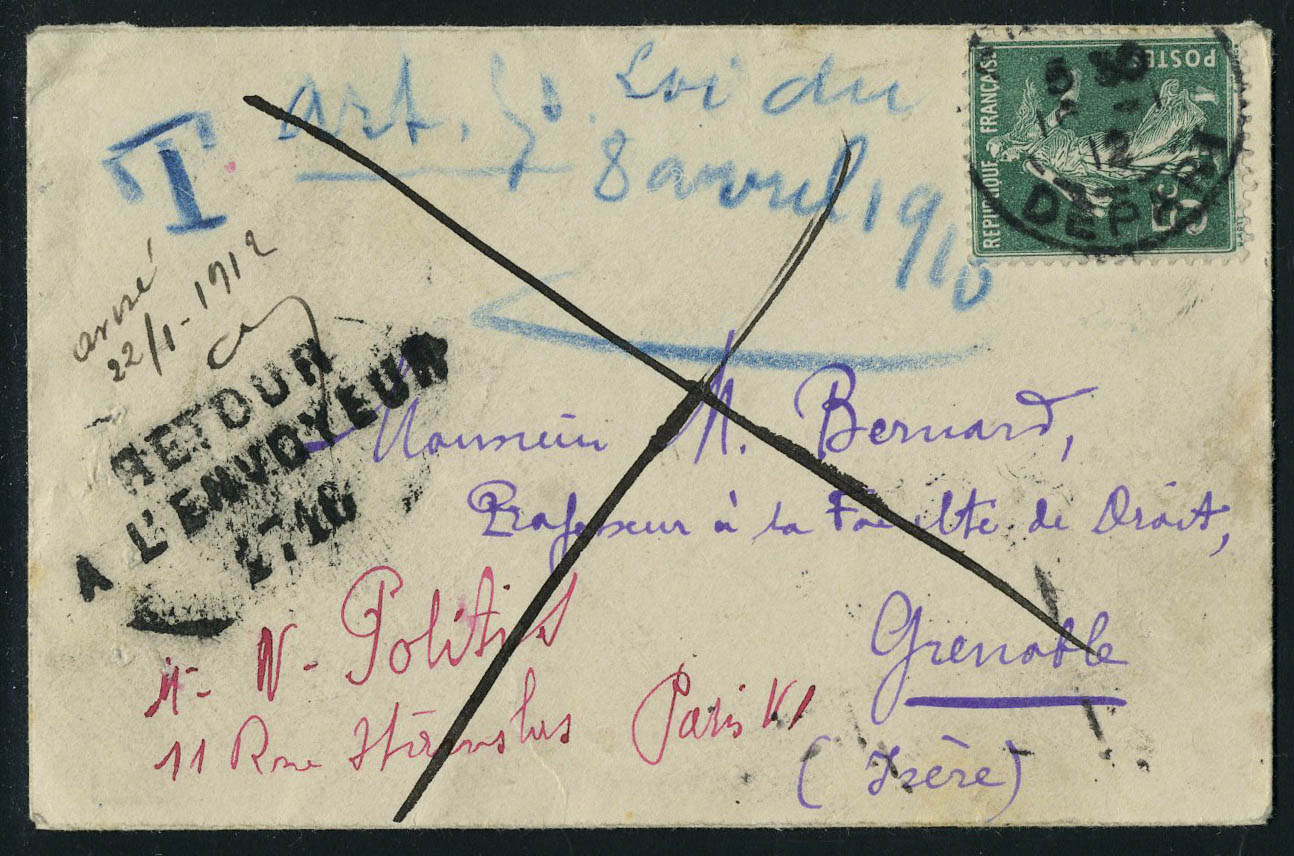 T
art. 50. Loi du
8 avril 1910
REPUBLIQUE FRANÇAISE
POSTES
5c
5 30
16 - 1
12
DEPART
arrivé
22/1-1912
RETOUR
A L'ENVOYEUR
2710
Monsieur M. Bernard,
Professeur à la Faculté de Droit,
Grenoble
(Isère)
M- N- Politis
11 Rue Stanislas Paris VI